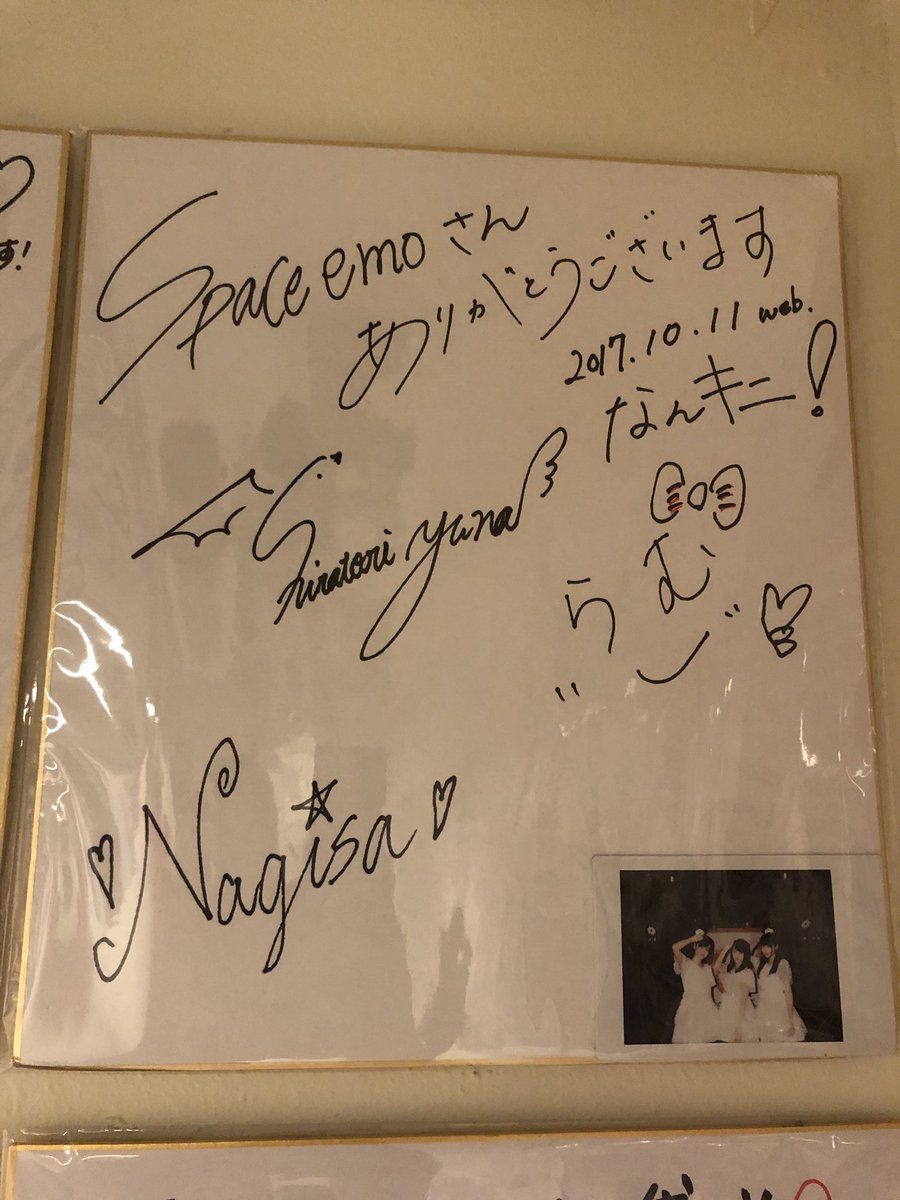 Space emo さん
ありがとうございます
2017.10.11 web.
なんキニ!
Shiratori yuna
らむ
Nagisa
す!